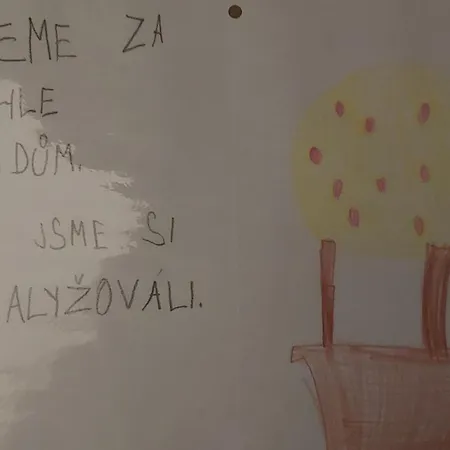 EME ZA
HLE
DŮM.
JSME SI
ALYŽOVÁLI.